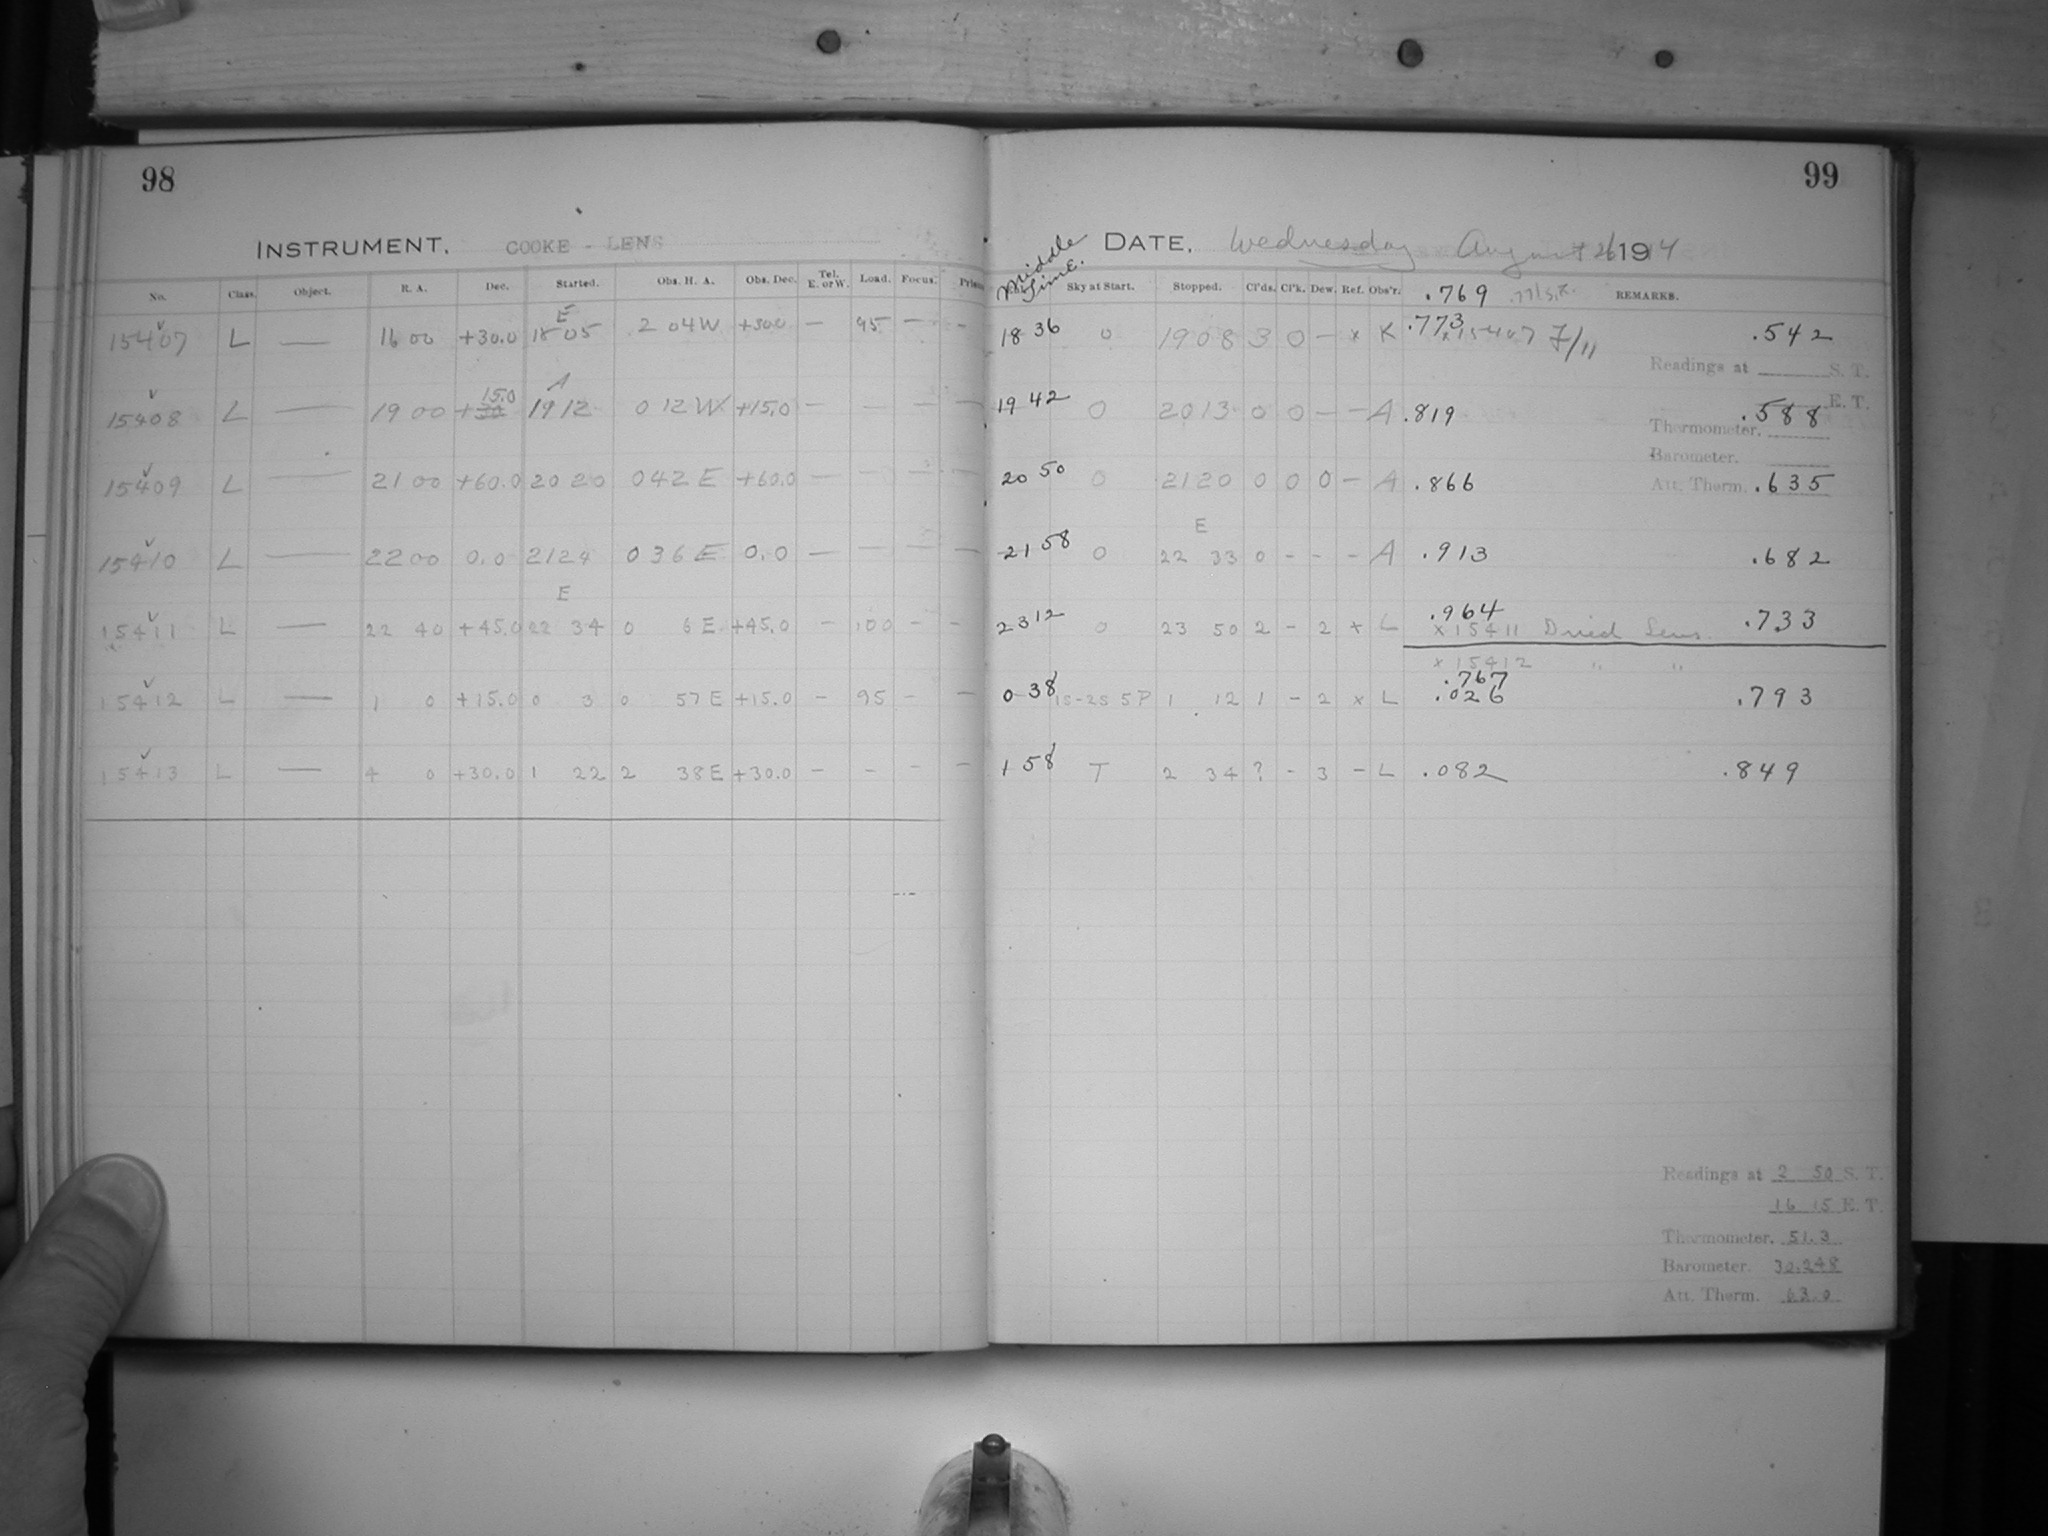 98
INSTRUMENT. COOKE - LENS
No. Class. Object. R. A. Dec. Started. Obs. H. A. Obs. Dec. Tel. E. or W. Load. Focus.
E
15407 L — 16 00 +30.0 18 05 2 04 W +30.0 — 95 — —
A
15.0
15408 L — 19 00 +30 19 12 0 12 W +15.0 — — — —
15409 L — 21 00 +60.0 20 20 0 42 E +60.0 — — — —
15410 L — 22 00 0.0 21 24 0 36 E 0.0 — — — —
E
15411 L — 22 40 +45.0 22 34 0 6 E +45.0 — 100 — —
15412 L — 1 0 +15.0 0 3 0 57 E +15.0 — 95 — —
15413 L — 4 0 +30.0 1 22 2 38 E +30.0 — — — —
99
DATE. Wednesday August 26 1914
Middle Time. Sky at Start. Stopped. Cl'ds. Cl'k. Dew. Ref. Obs'r. .769 REMARKS.
18 36 0 19 08 3 0 — x K .773 x15407 F/11 .542
Readings at S. T.
E. T.
19 42 0 20 13 0 0 — — A .819 .588
Thermometer.
Barometer.
20 50 0 21 20 0 0 0 — A .866 Att. Therm. .635
E
21 58 0 22 33 0 - - - A .913 .682
.964
23 12 0 23 50 2 - 2 x L x 15411 Dried Lens. .733
x 15412 " "
.767
0 38 1s-2s 5P 1 12 1 - 2 x L .026 .793
1 58 T 2 34 ? - 3 - L .082 .849
Readings at 2 50 S. T.
16 15 E. T.
Thermometer. 51.3
Barometer. 30.248
Att. Therm. 63.0